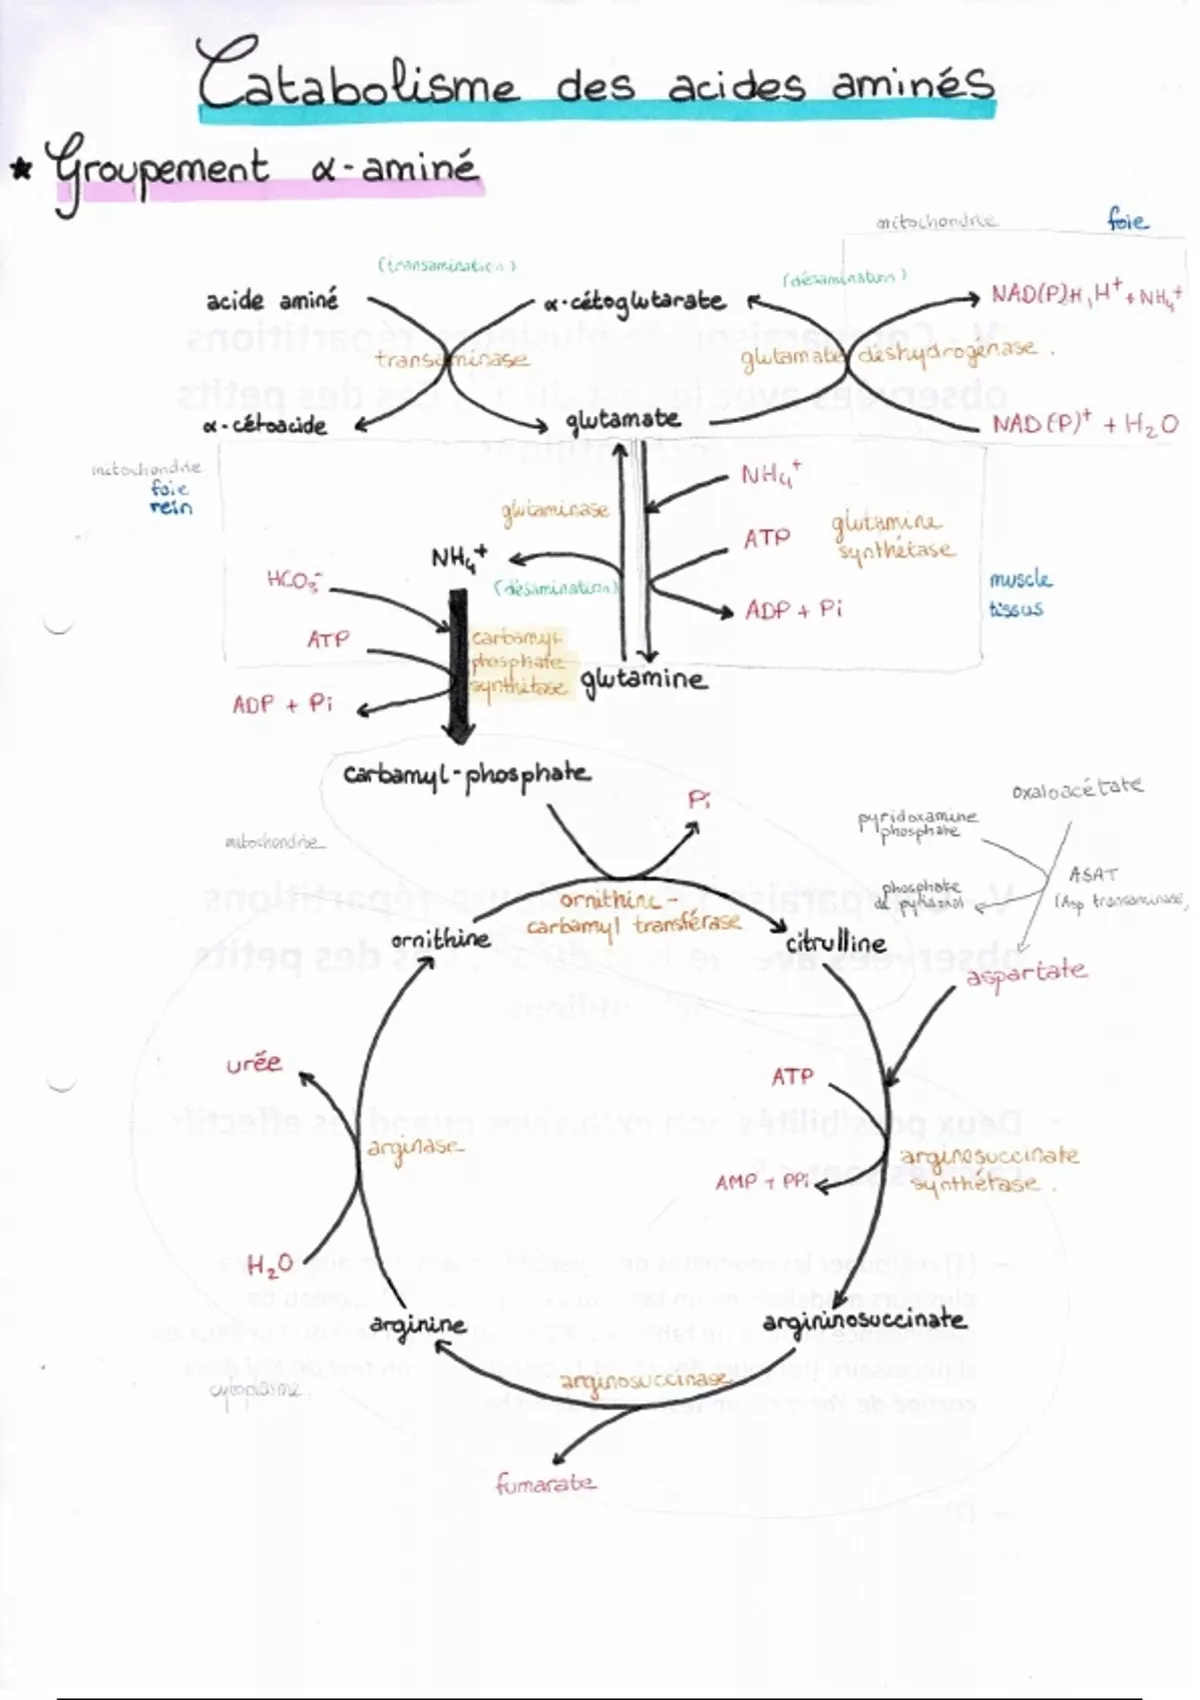 Catabolisme des acides aminés
★ Groupement α-aminé
mitochondrie foie
(transamination) (désamination)
acide aminé α-cétoglutarate NAD(P)H, H⁺ + NH₄⁺
transaminase glutamate déshydrogénase.
α-cétoacide glutamate NAD(P)⁺ + H₂O
mitochondrie
foie
rein
NH₄⁺
glutaminase
ATP
glutamine
synthétase
NH₄⁺
HCO₃⁻
(désamination)
muscle
tissus
ADP + Pi
ATP
carbamyl
phosphate
synthétase
glutamine
ADP + Pi
carbamyl-phosphate
Pi
oxaloacétate
pyridoxamine
phosphate
mitochondrie
ASAT
(Asp transaminase)
phosphate
de pyridoxal
ornithine-
carbamyl transférase
ornithine citrulline
aspartate
urée
ATP
arginase
arginosuccinate
synthétase.
AMP + PPi
H₂O
arginine argininosuccinate
arginosuccinase
cytoplasme.
fumarate